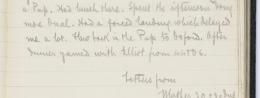 a Pup. Had lunch there. Spent the afternoon doing
more Dual. Had a forced landing which delayed
me a lot. Flew back in the Pup to Oxford. After
dinner gamed with Elliot from
Letters from
Mother